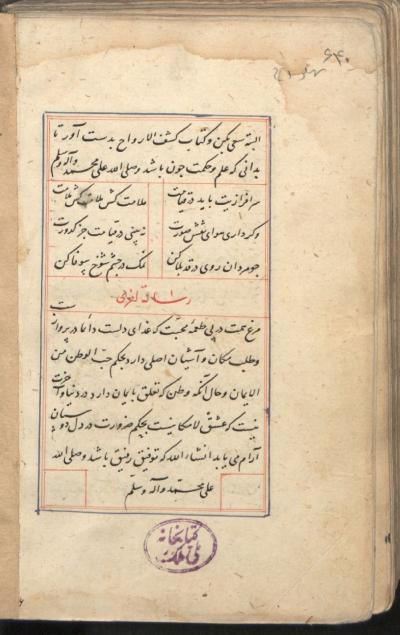 البته سعی بکن و کتاب کشف الارواح بدست آور تا
بدانی که علم و حکمت چون باشد و صلی الله علی محمد وآله وسلم
سرافرازیت باید در قیامت ملامت کش ملامت کش ملامت
وگر داری هوای نقش صورت نه بینی در قیامت جز کدورت
چو مردان روی در قد بلا کن نمک در چشم شوخ بیوفا کن
رساله
مرغ همت در پی طعمهٔ محبت که غذای دلست دائما در پرواز
وطلب مکان و آشیان اصلی دارد بحکم حب الوطن من
الایمان و حال آنکه وطن که تعلق بایمان دارد در دنیا و آخرت
نیست که عشق لامکانیست بحکم ضرورت در دل دوستان
آرام می یابد انشاء الله که توفیق رفیق باشد و صلی الله
علی محمد وآله وسلم
کتابخانه
ملی ملک